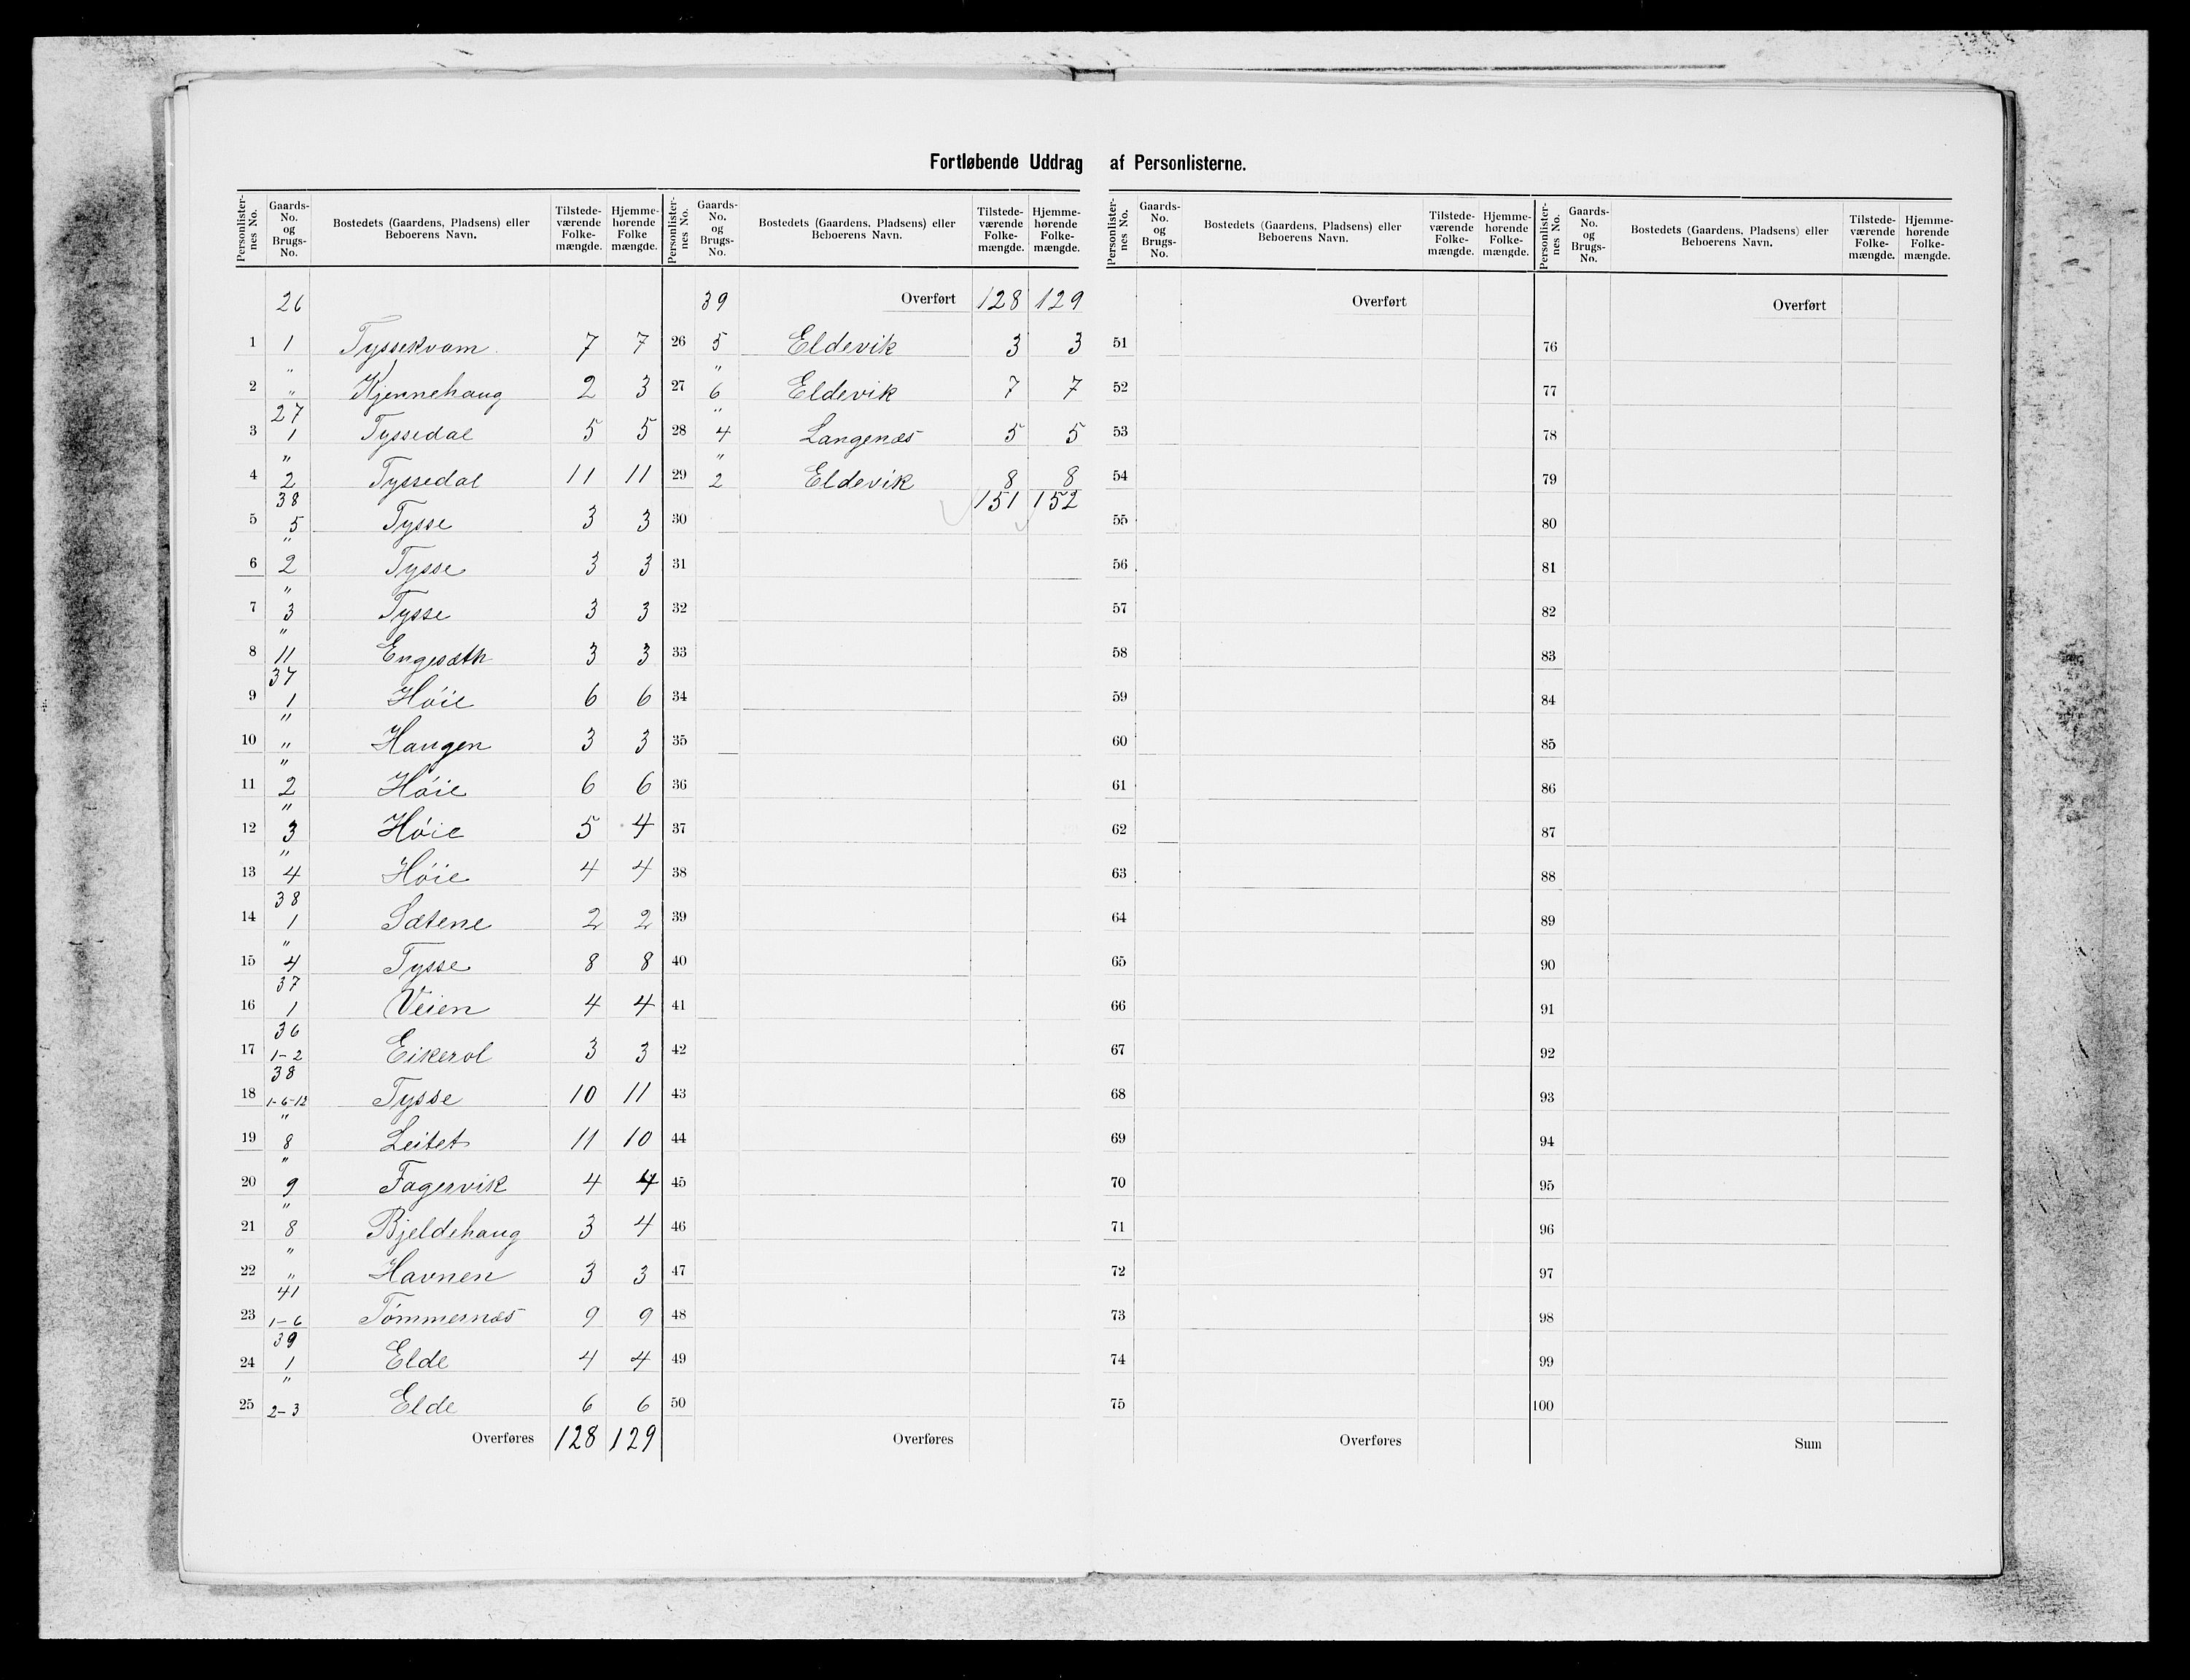 Fortløbende Uddrag af Personlisterne.
Personlisternes No. | Gaards-No. og Brugs-No. | Bostedets (Gaardens, Pladsens) eller Beboerens Navn. | Tilstedeværende Folkemængde. | Hjemmehørende Folkemængde.
26
1 | 1 | Tyssekvam | 7 | 7
2 | " " | Kjennehaug | 2 | 3
3 | 27 1 | Tyssedal | 5 | 5
4 | " 2 | Tyssedal | 11 | 11
5 | 38 5 | Tysse | 3 | 3
6 | " 2 | Tysse | 3 | 3
7 | " 3 | Tysse | 3 | 3
8 | " 11 | Engesæth | 3 | 3
9 | 37 1 | Høie | 6 | 6
10 | " " | Haugen | 3 | 3
11 | " 2 | Høie | 6 | 6
12 | " 3 | Høie | 5 | 4
13 | " 4 | Høie | 4 | 4
14 | 38 1 | Sætene | 2 | 2
15 | " 4 | Tysse | 8 | 8
16 | 37 1 | Veien | 4 | 4
17 | 36 1-2 | Eikerol | 3 | 3
18 | 38 1-6-12 | Tysse | 10 | 11
19 | " 8 | Leitet | 11 | 10
20 | " 9 | Fagervik | 4 | 4
21 | " 8 | Bjeldehaug | 3 | 4
22 | " " | Havnen | 3 | 3
23 | 41 1-6 | Tømmernæs | 9 | 9
24 | 39 1 | Elde | 4 | 4
25 | " 2-3 | Elde | 6 | 6
Overføres | 128 | 129
Personlisternes No. | Gaards-No. og Brugs-No. | Bostedets (Gaardens, Pladsens) eller Beboerens Navn. | Tilstedeværende Folkemængde. | Hjemmehørende Folkemængde.
39 | Overført | 128 | 129
26 | 5 | Eldevik | 3 | 3
27 | " 6 | Eldevik | 7 | 7
28 | " 4 | Langenæs | 5 | 5
29 | " 2 | Eldevik | 8 | 8
30 | 151 | 152
31
32
33
34
35
36
37
38
39
40
41
42
43
44
45
46
47
48
49
50
Overføres
Personlisternes No. | Gaards-No. og Brugs-No. | Bostedets (Gaardens, Pladsens) eller Beboerens Navn. | Tilstedeværende Folkemængde. | Hjemmehørende Folkemængde.
Overført
51
52
53
54
55
56
57
58
59
60
61
62
63
64
65
66
67
68
69
70
71
72
73
74
75
Overføres
Personlisternes No. | Gaards-No. og Brugs-No. | Bostedets (Gaardens, Pladsens) eller Beboerens Navn. | Tilstedeværende Folkemængde. | Hjemmehørende Folkemængde.
Overført
76
77
78
79
80
81
82
83
84
85
86
87
88
89
90
91
92
93
94
95
96
97
98
99
100
Sum